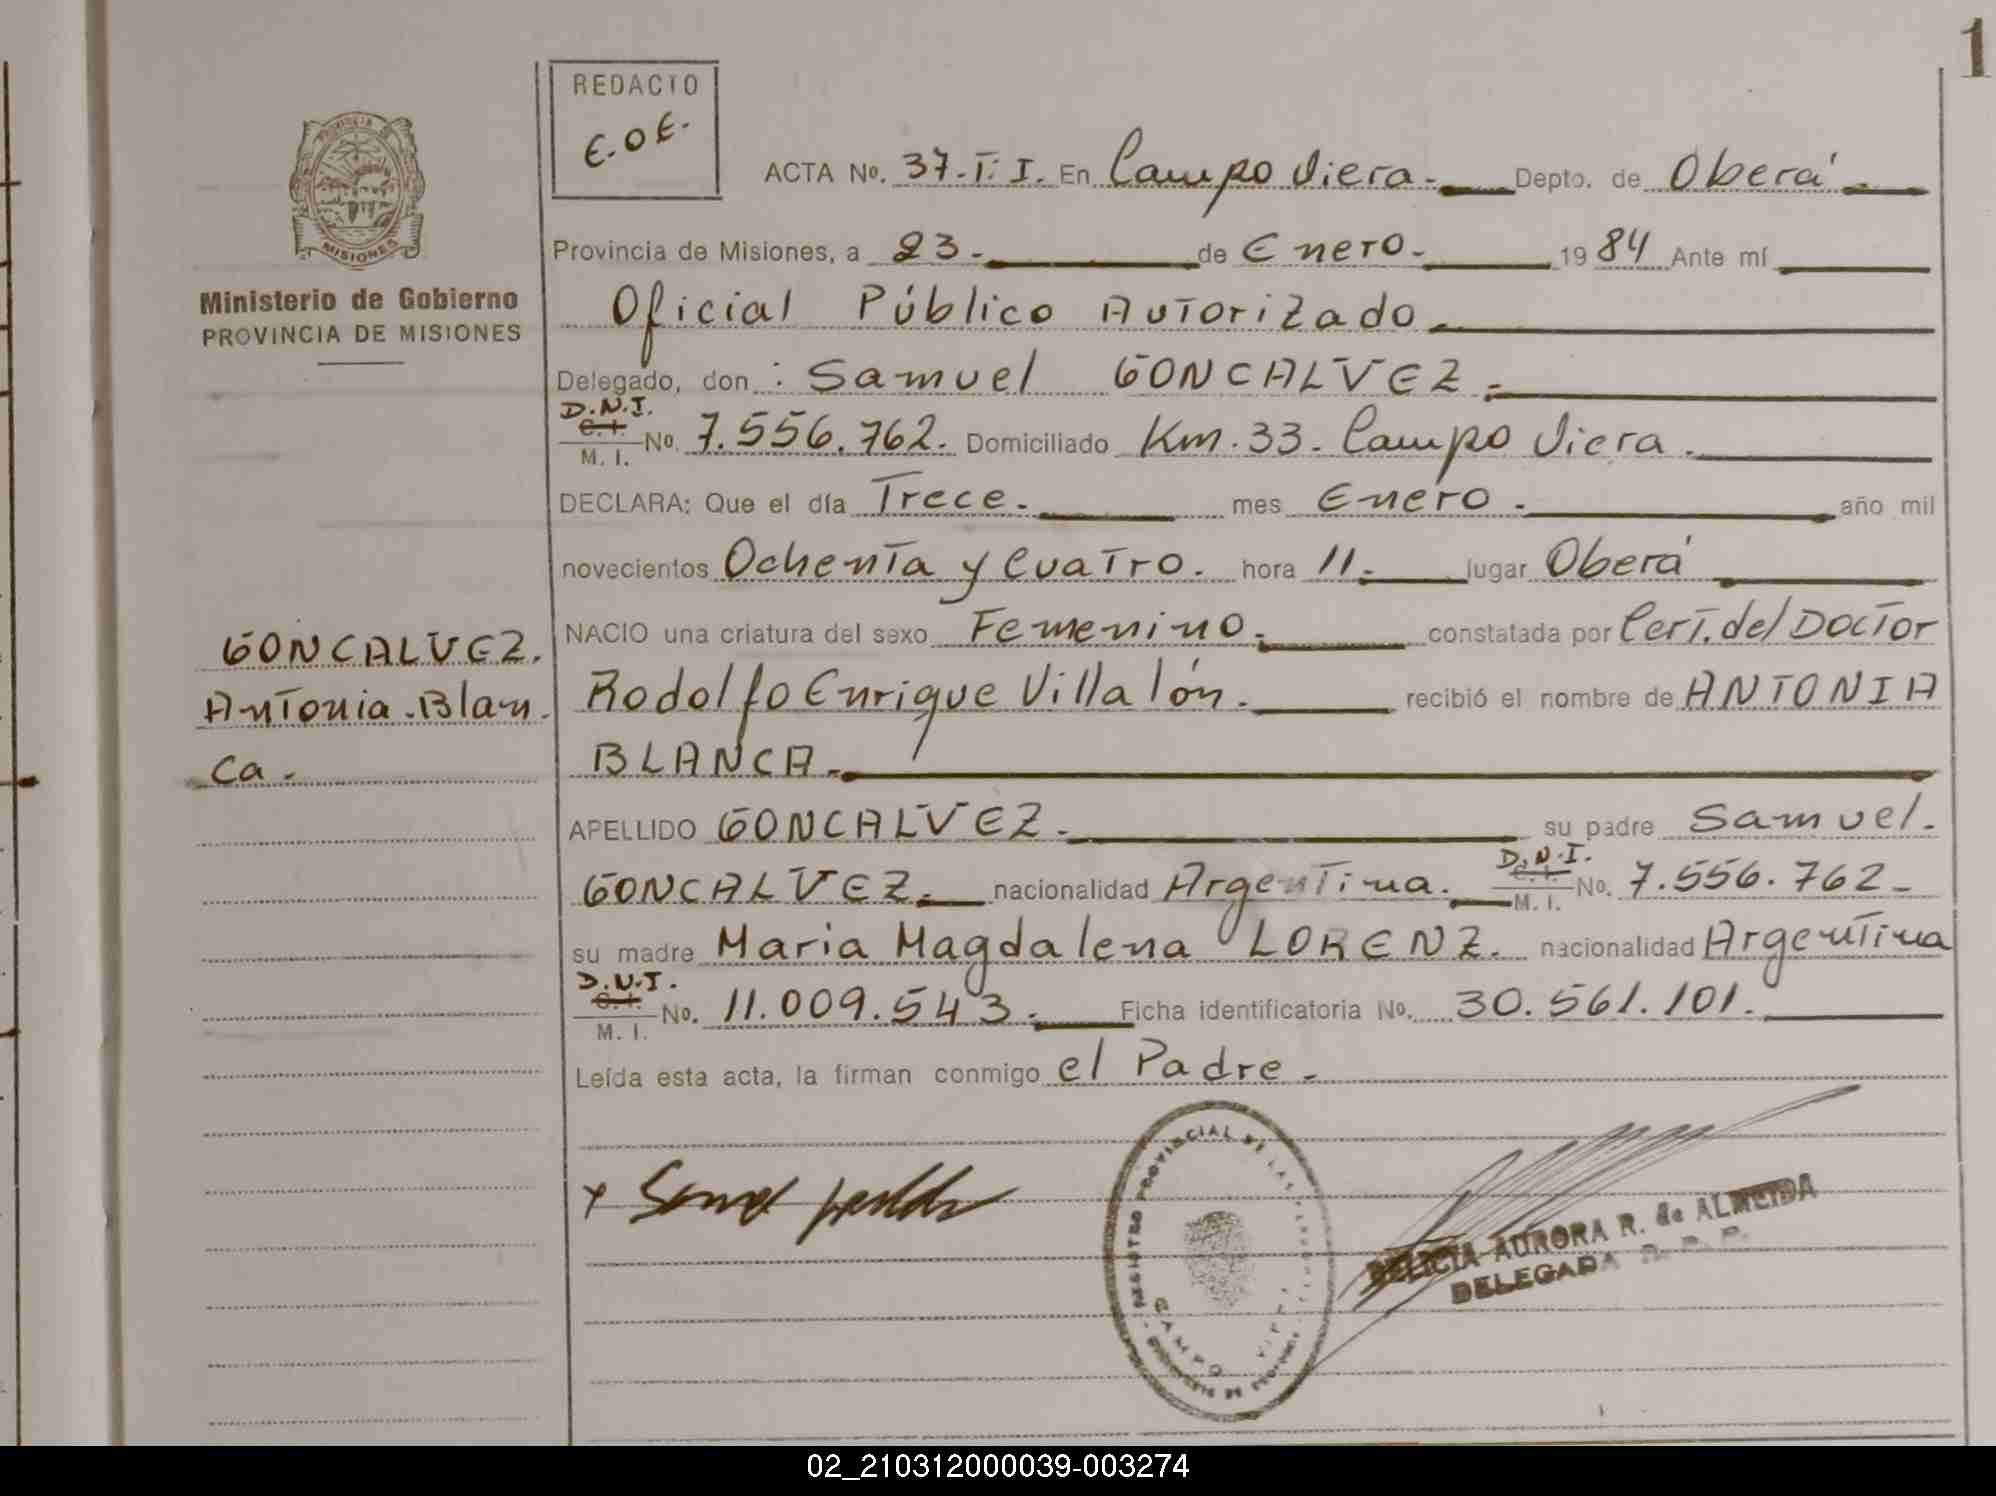 1
REDACTO
E.O.E.
PROVINCIA DE
MISIONES
Ministerio de Gobierno
PROVINCIA DE MISIONES
ACTA No. 37-T. I. En Campo Viera.- Depto. de Oberá.-
Provincia de Misiones, a 23.- de Enero.- 1984 Ante mí
Oficial Público Autorizado.-
Delegado, don : Samuel GONCALVEZ.-
D.N.I.
C. I.
M. I. No. 7.556.762. Domiciliado Km. 33. Campo Viera.
DECLARA: Que el día Trece.- mes Enero.- año mil
novecientos Ochenta y Cuatro. hora 11.- lugar Oberá
NACIO una criatura del sexo Femenino.- constatada por Cert. del Doctor
Rodolfo Enrique Villalón.- recibió el nombre de ANTONIA
BLANCA.-
GONCALVEZ.
Antonia.Blan.
Ca.-
APELLIDO GONCALVEZ.- su padre Samuel.
GONCALVEZ.- nacionalidad Argentina.- D.N.I. C. I. M. I. No. 7.556.762-
su madre Maria Magdalena LORENZ. nacionalidad Argentina
D.N.I.
C. I.
M. I. No. 11.009.543.- Ficha identificatoria No. 30.561.101.-
Leída esta acta, la firman conmigo el Padre.-
x
REGISTRO PROVINCIAL DE LAS PERSONAS
CAMPO VIERA
DELICIA AURORA R. de ALMEIDA
DELEGADA R. P. P.
02_210312000039-003274